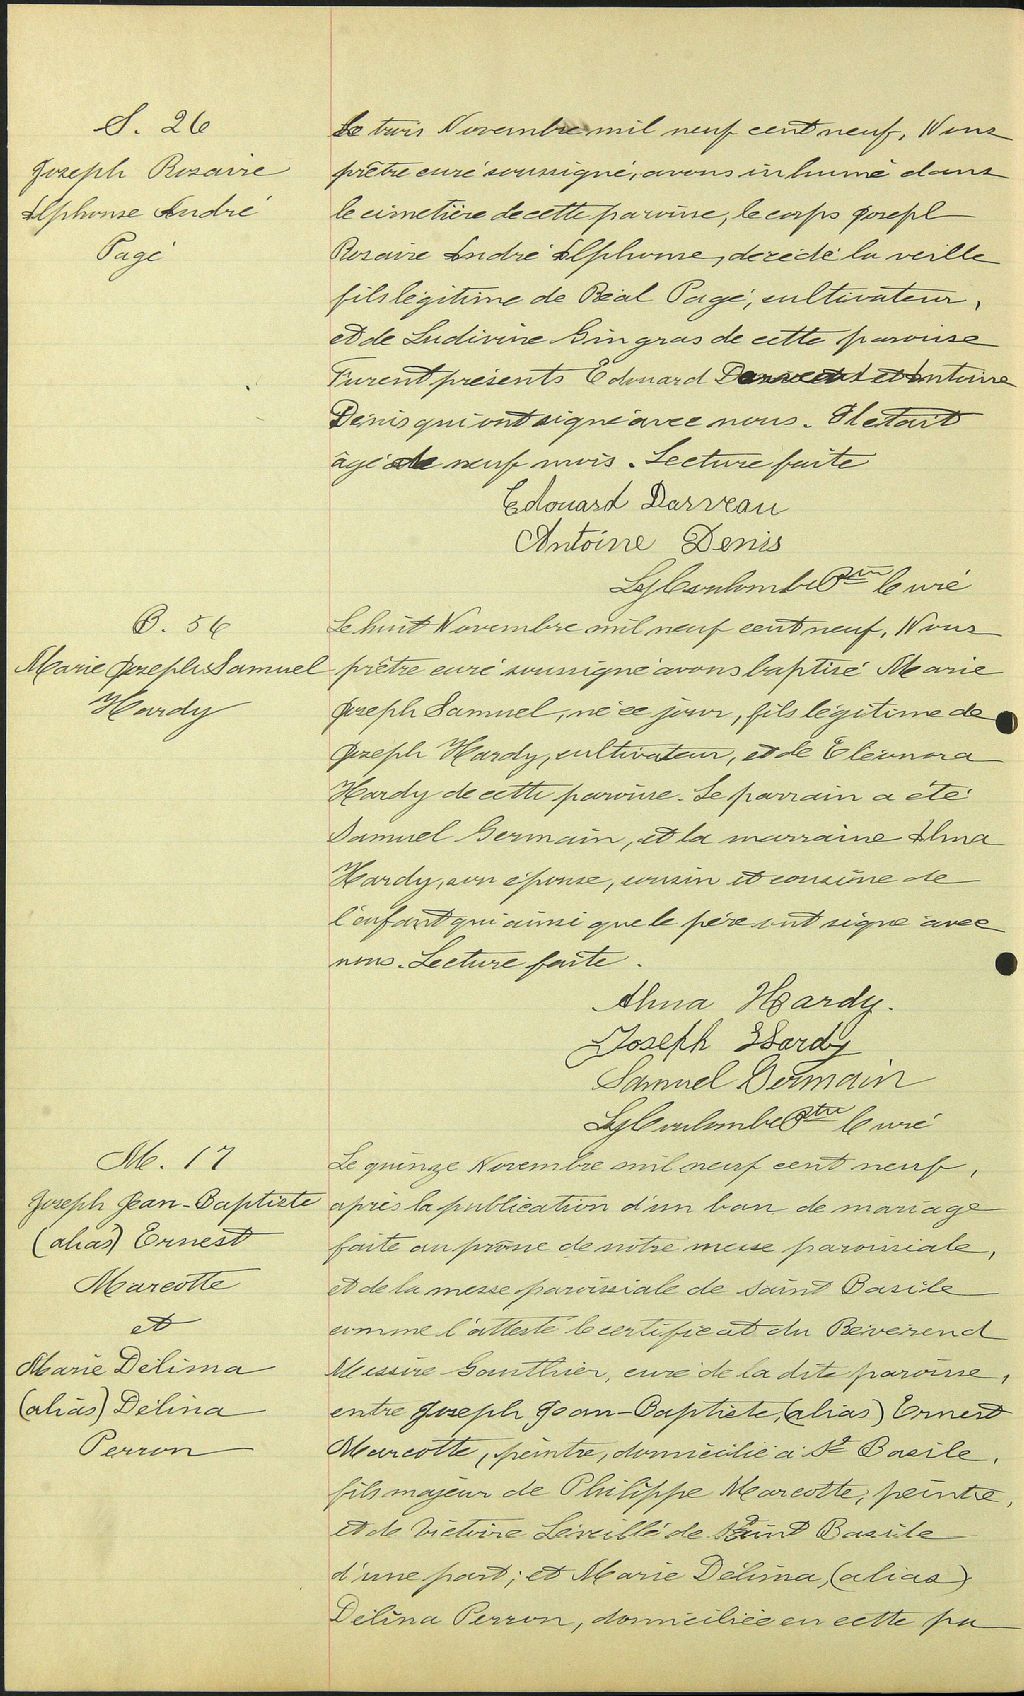 S. 26
Joseph Rosaire
Alphonse André
Pagé
Le trois Novembre mil neuf cent neuf, Nous
prêtre curé soussigné, avons inhumé dans
le cimetière de cette paroisse, le corps Joseph
Rosaire André Alphonse, décédé la veille
fils légitime de Réal Pagé, cultivateur,
et de Ludivine Gingras de cette paroisse
Furent présents Edouard Darveau et Antoine
Denis qui ont signé avec nous. Il était
âgé de neuf mois. Lecture faite
Edouard Darveau
Antoine Denis
Coulombe Ptre Curé
B. 56
Marie Joseph Samuel
Hardy
Le huit Novembre mil neuf cent neuf, Nous
prêtre curé soussigné avons baptisé Marie
Joseph Samuel, né ce jour, fils légitime de
Joseph Hardy, cultivateur, et de Eléonora
Hardy de cette paroisse. Le parrain a été
Samuel Germain, et la marraine Alma
Hardy, son épouse, cousin et cousine de
l'enfant qui ainsi que le père ont signé avec
nous. Lecture faite.
Alma Hardy.
Joseph Hardy
Samuel Germain
Coulombe Ptre Curé
M. 17
Joseph Jean-Baptiste
(alias) Ernest
Marcotte
et
Marie Délima
(alias) Délina
Perron
Le quinze Novembre mil neuf cent neuf,
après la publication d'un ban de mariage
faite au prône de notre messe paroissiale,
et de la messe paroissiale de Saint Basile
comme l'atteste le certificat du Révérend
Messire Gauthier, curé de la dite paroisse,
entre Joseph Jean-Baptiste, (alias) Ernest
Marcotte, peintre, domicilié à St Basile,
fils majeur de Philippe Marcotte, peintre,
et de Victoire Léveillé de Saint Basile
d'une part; et Marie Délima, (alias)
Délina Perron, domiciliée en cette pa